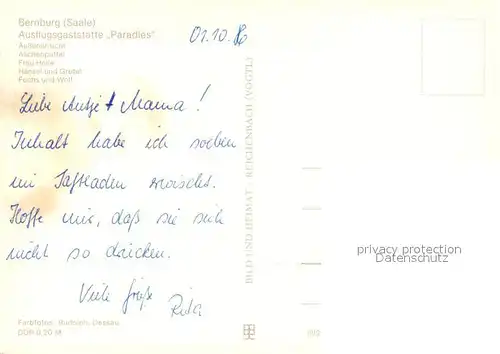 Bernburg (Saale)
Ausflugsgaststätte „Paradies"
Außenansicht
Aschenputtel
Frau Holle
Hänsel und Gretel
Fuchs und Wolf
01.10.86
Liebe Antje + Mama!
Inhalt habe ich soeben
im Saftladen erwischt.
Hoffe nur, daß sie sich
nicht so drücken.
Viele Grüße
Rita
Farbfotos: Dessau
DDR 0,20 M
BILD UND HEIMAT · REICHENBACH (VOGTL)
privacy protection
Datenschutz